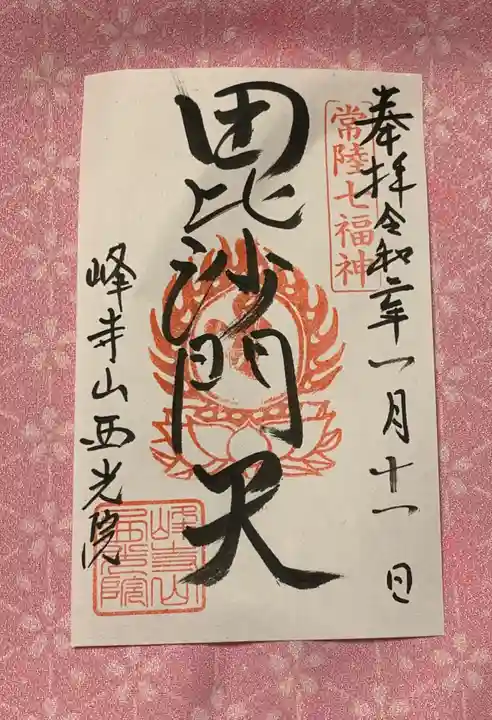 奉拝令和二年一月十一日
常陸七福神
毘沙門天
峰寺山西光院
峰寺山
西光院